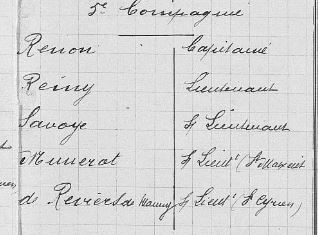 5e Compagnie
Renon Capitaine
Remy Lieutenant
Savoye S/ Lieutenant
Munerot S/ Lieutt (St Maixent
de Reviers de Mauny S/ Lieutt (St Cyrien)